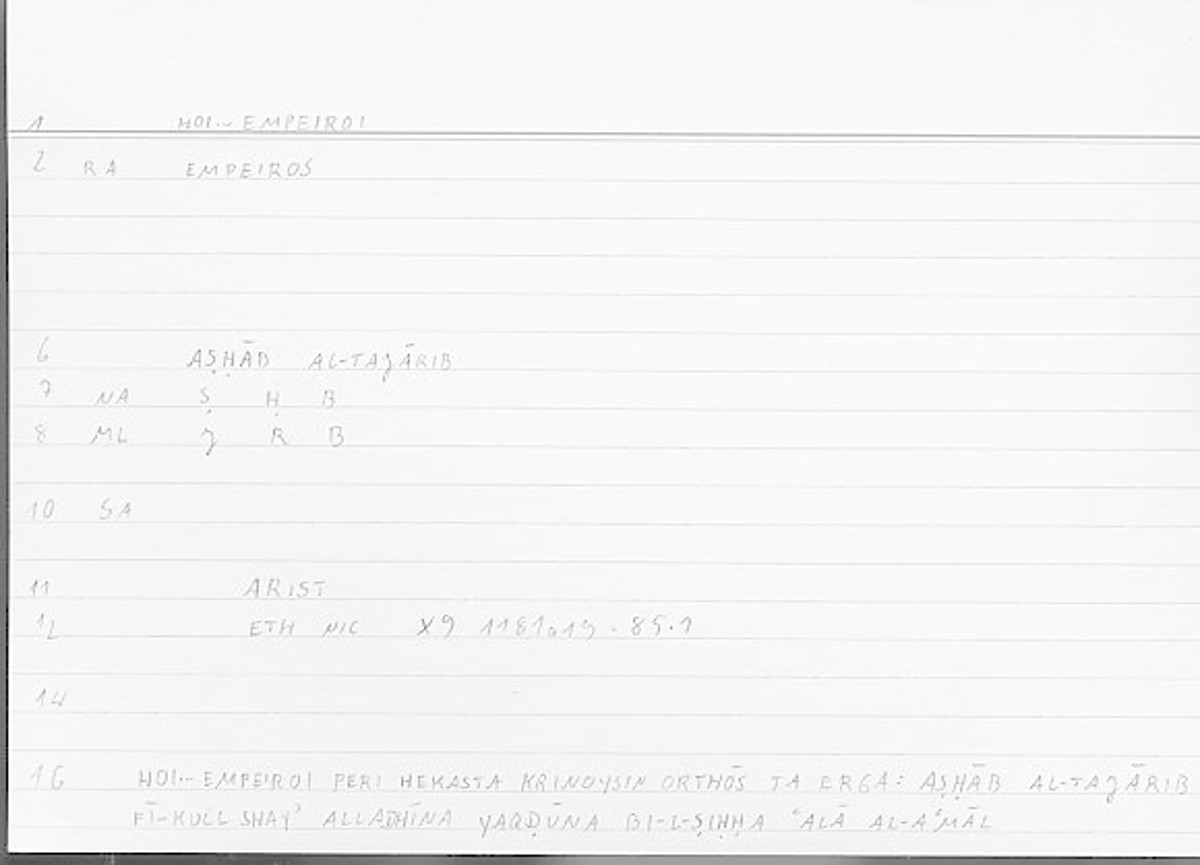 1 HOI... EMPEIROI
2 RA EMPEIROS
6 AṢḤĀB AL-TAJĀRIB
7 NA Ṣ Ḥ B
8 ML J R B
10 SA
11 ARIST
12 ETH NIC X9 1181a19
14
16 HOI... EMPEIROI PERI HEKASTA KRINOYSIN ORTHŌS TA ERGA: AṢḤĀB AL-TAJĀRIB
FĪ-KULL SHAYʾ ALLADHĪNA YAQḌŪNA BI-L-ṢIḤḤA ʿALĀ AL-AʿMĀL